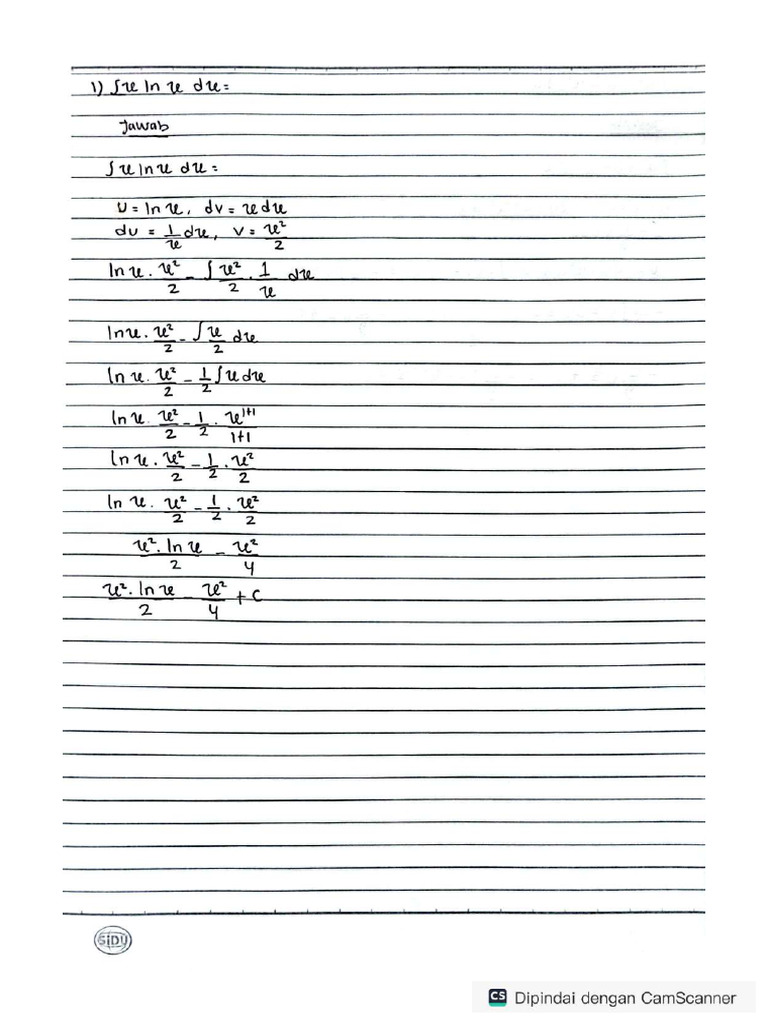 1) ∫x ln x dx =
Jawab
∫x ln x dx =
U = ln x, dv = x dx
du = 1/x dx, v = x²/2
ln x · x²/2 - ∫ x²/2 · 1/x dx
ln x · x²/2 - ∫ x/2 dx
ln x · x²/2 - 1/2 ∫ x dx
ln x · x²/2 - 1/2 · x¹⁺¹/1+1
ln x · x²/2 - 1/2 · x²/2
ln x · x²/2 - 1/2 · x²/2
x² · ln x/2 - x²/4
x² · ln x/2 - x²/4 + c
SiDU
CS Dipindai dengan CamScanner